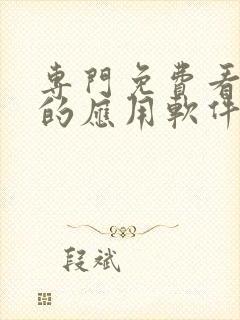 專門免費看
的應用軟件
段斌